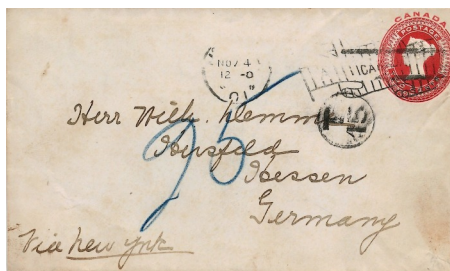 CANADA
POSTAGE
NOV 4
12 - 0
01
T 15
25
Herr Wilh. Klemm
Hersfeld
Hessen
Germany
Via New York